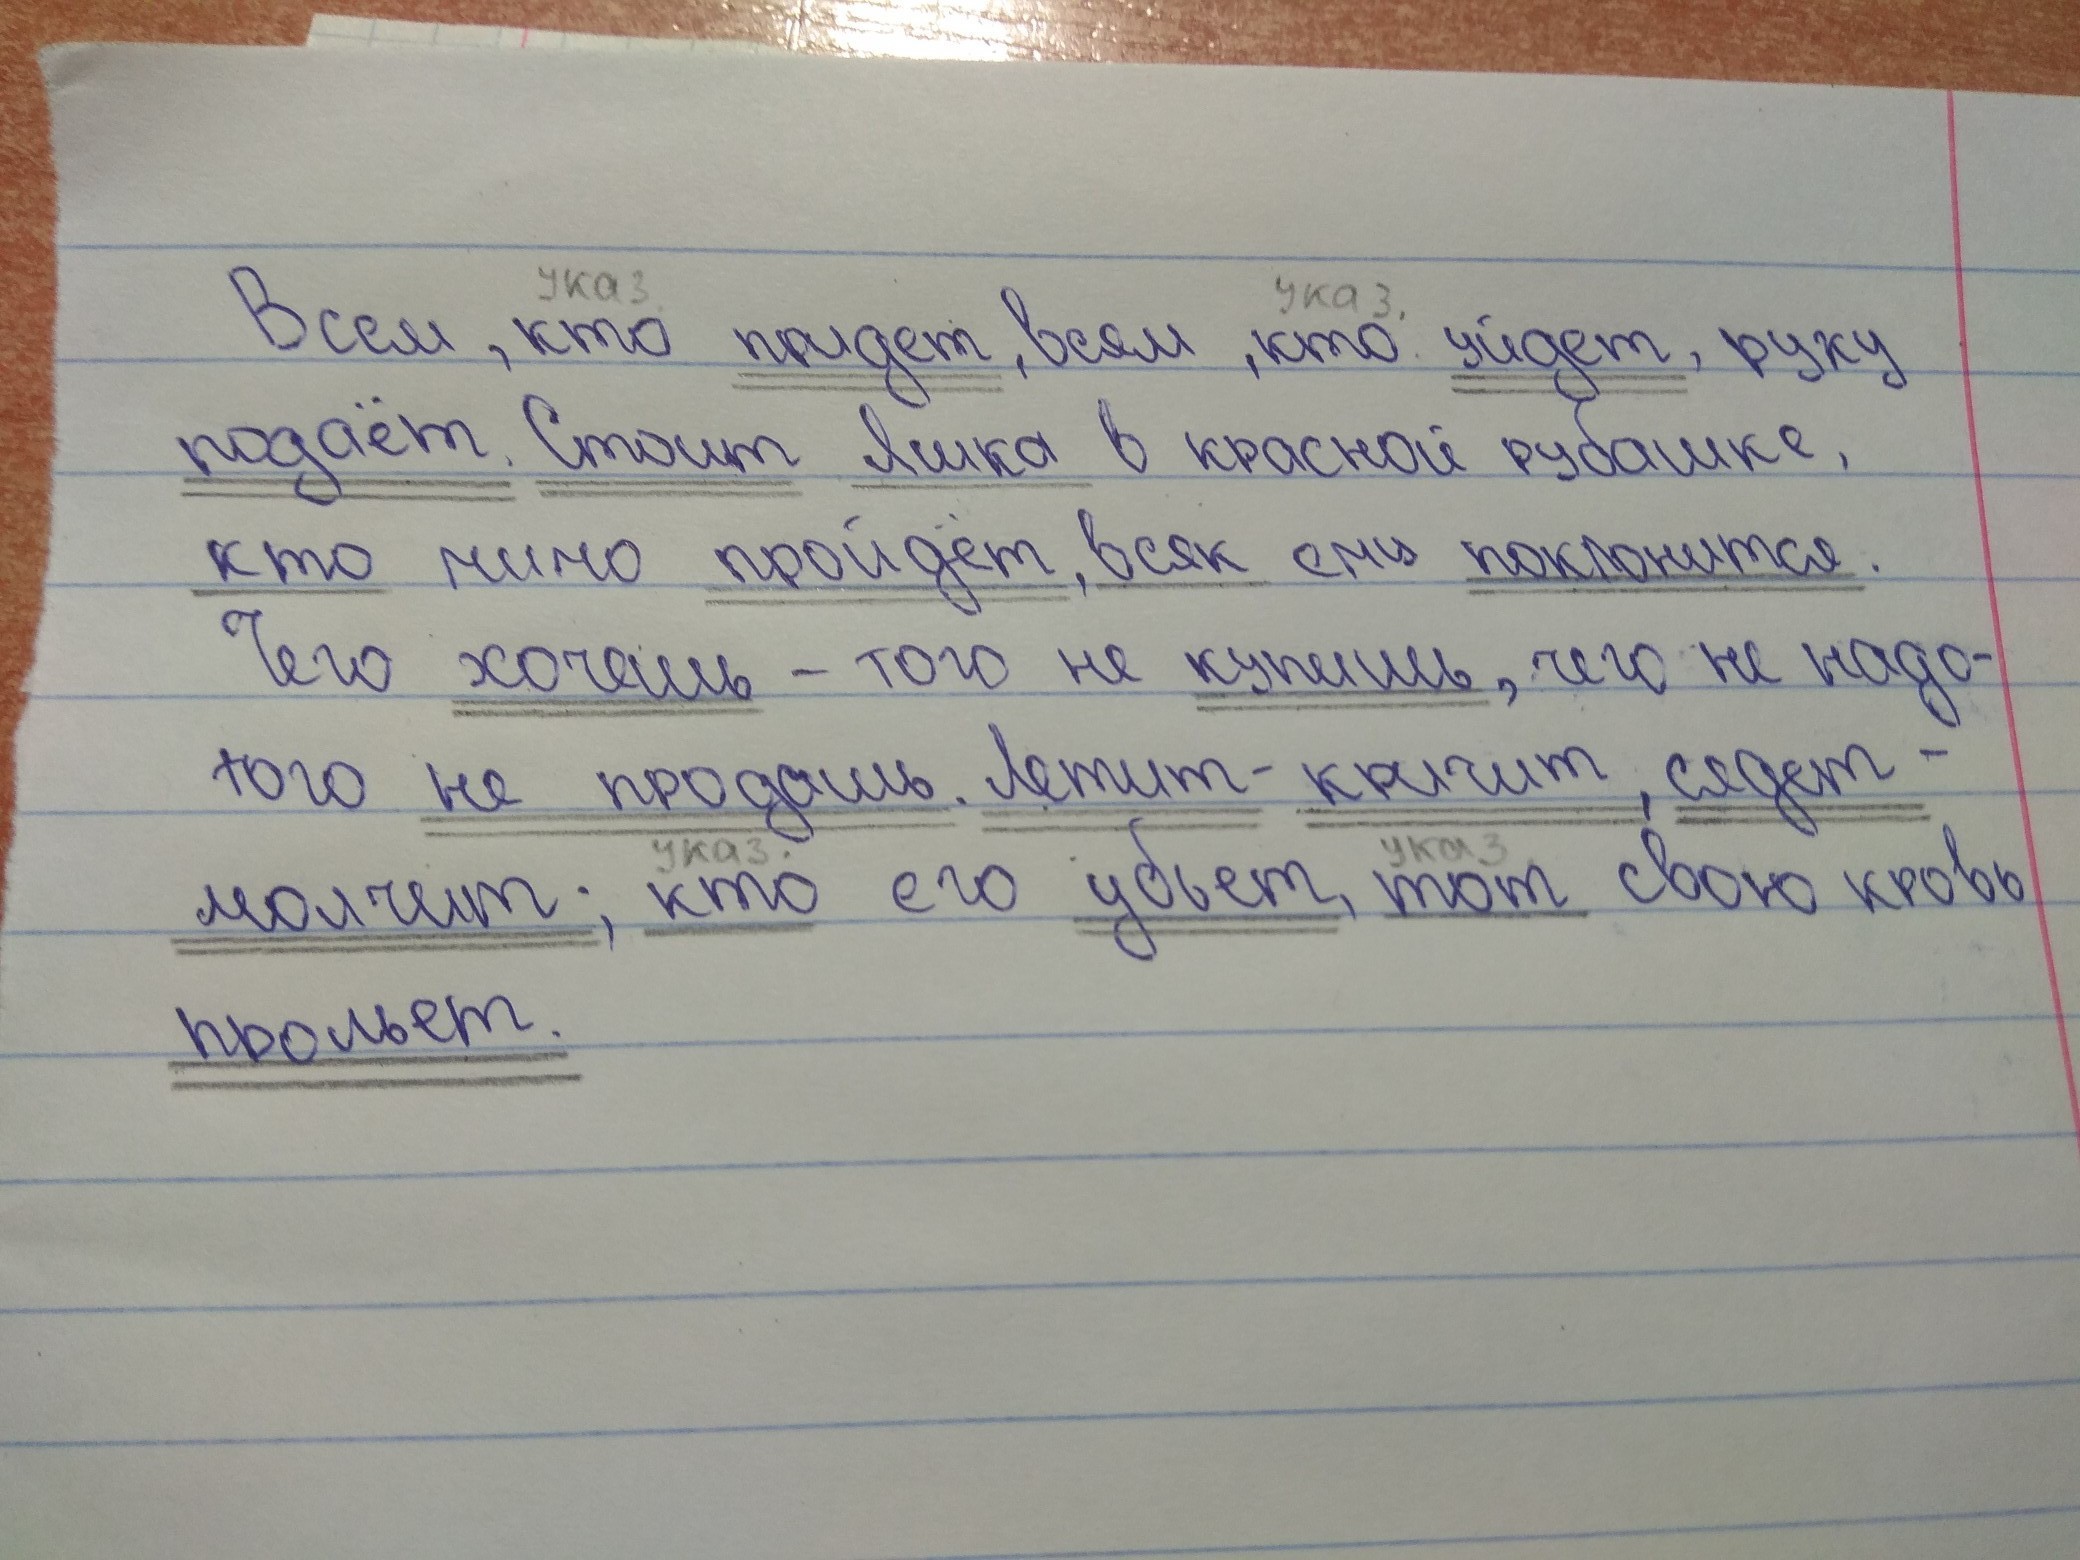 указ. указ.
Всем, кто придет, всем, кто уйдет, руку
подаёт. Стоит Яшка в красной рубашке,
кто мимо пройдёт, всяк ему поклонится.
Чего хочешь - того не купишь, чего не надо-
того не продашь. Летит- кричит, сядет -
указ. указ
молчит; кто его убьет, тот свою кровь
прольет.